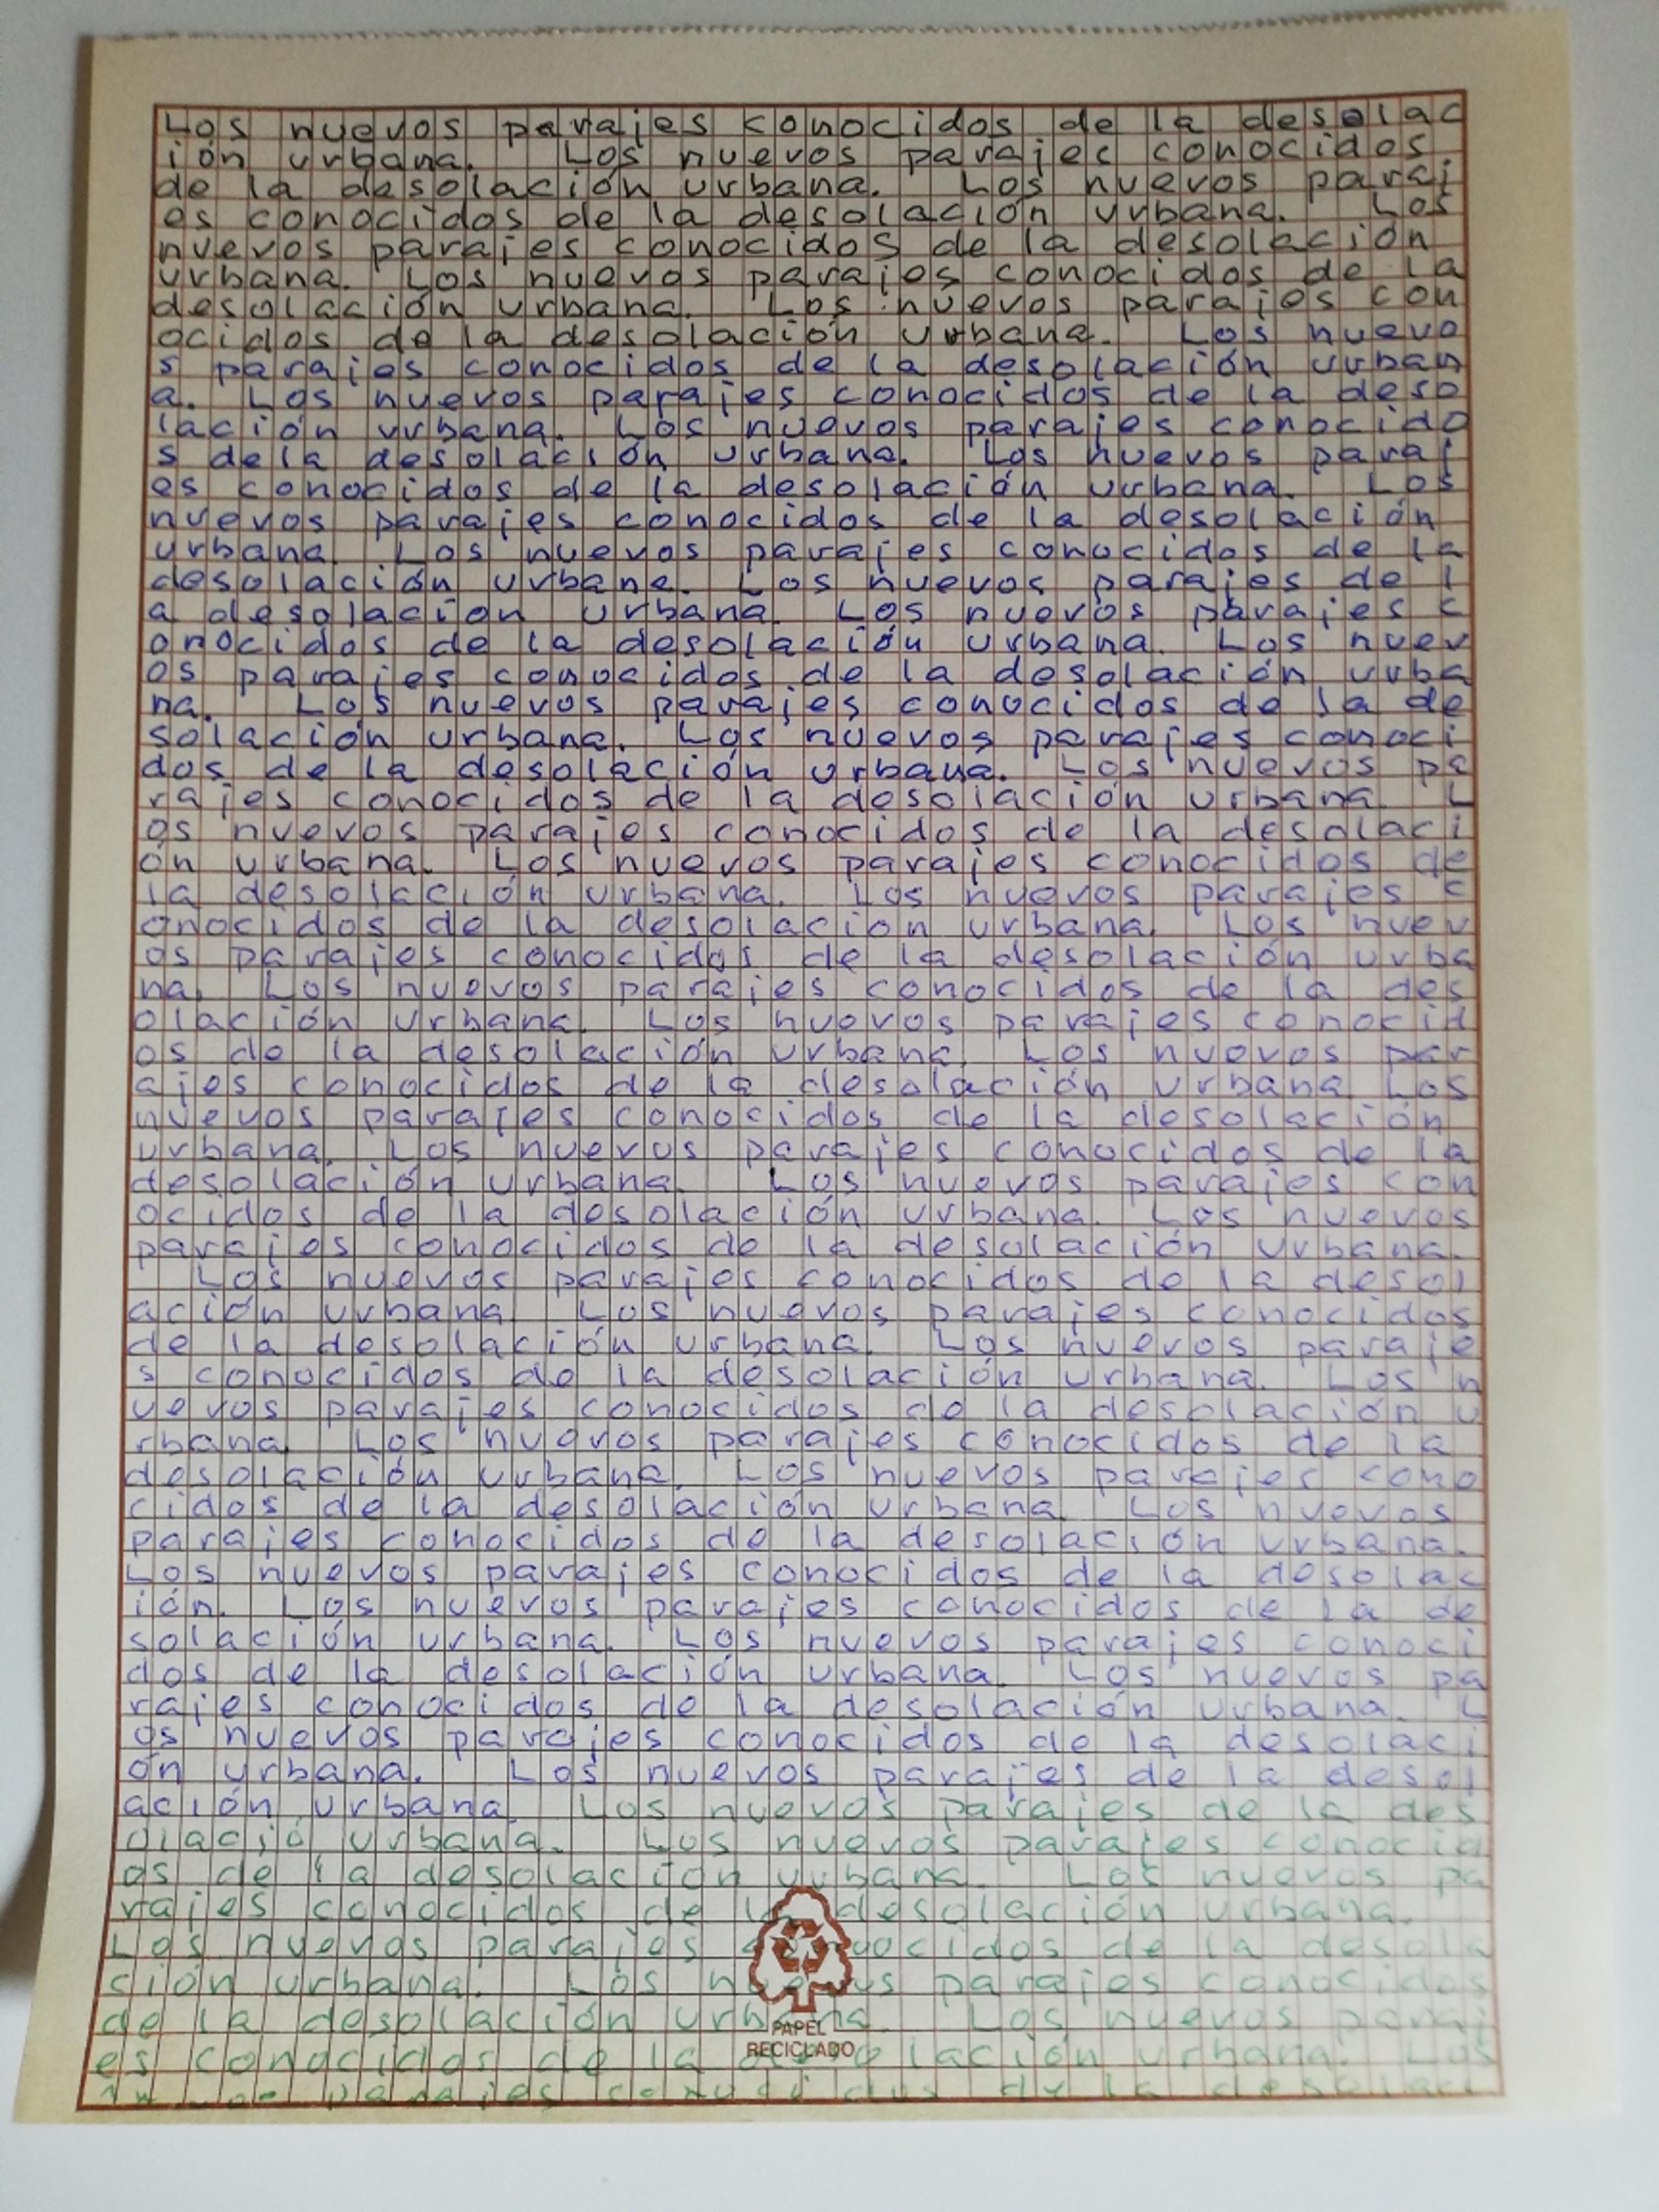 Los nuevos parajes conocidos de la desolac
ión urbana. Los nuevos parajes conocidos
de la desolación urbana. Los nuevos paraj
es conocidos de la desolación urbana. Los
nuevos parajes conocidos de la desolación
urbana. Los nuevos parajes conocidos de la
desolación urbana. Los nuevos parajes con
ocidos de la desolación urbana. Los nuevo
s parajes conocidos de la desolación urban
a. Los nuevos parajes conocidos de la deso
lación urbana. Los nuevos parajes conocido
s dela desolación urbana. Los nuevos paraj
es conocidos de la desolación urbana. Los
nuevos parajes conocidos de la desolación
urbana. Los nuevos parajes conocidos de la
desolación urbana. Los nuevos parajes de l
a desolación urbana. Los nuevos parajes c
onocidos de la desolación urbana. Los nuev
os parajes conocidos de la desolación urba
na. Los nuevos parajes conocidos de la de
solación urbana. Los nuevos parajes conoci
dos de la desolación urbana. Los nuevos pa
rajes conocidos de la desolación urbana. L
os nuevos parajes conocidos de la desolaci
ón urbana. Los nuevos parajes conocidos de
la desolación urbana. Los nuevos parajes c
onocidos de la desolación urbana. Los nuev
os parajes conocidos de la desolación urba
na. Los nuevos parajes conocidos de la des
olación urbana. Los nuevos parajes conocid
os de la desolación urbana. Los nuevos par
ajes conocidos de la desolación urbana. Los
nuevos parajes conocidos de la desolación
urbana. Los nuevos parajes conocidos de la
desolación urbana. Los nuevos parajes con
ocidos de la desolación urbana. Los nuevos
parajes conocidos de la desolación urbana.
Los nuevos parajes conocidos de la desol
ación urbana. Los nuevos parajes conocidos
de la desolación urbana. Los nuevos paraje
s conocidos de la desolación urbana. Los n
uevos parajes conocidos de la desolación u
rbana. Los nuevos parajes conocidos de la
desolación urbana. Los nuevos parajes cono
cidos de la desolación urbana. Los nuevos
parajes conocidos de la desolación urbana.
Los nuevos parajes conocidos de la desolac
ión. Los nuevos parajes conocidos de la de
solación urbana. Los nuevos parajes conoci
dos de la desolación urbana. Los nuevos pa
rajes conocidos de la desolación urbana. L
os nuevos parajes conocidos de la desolaci
ón urbana. Los nuevos parajes de la desol
ación urbana. Los nuevos parajes de la des
olació urbana. Los nuevos parajes conocid
os de la desolación urbana. Los nuevos pa
rajes conocidos de la desolación urbana.
Los nuevos parajes conocidos de la desola
ción urbana. Los nuevos parajes conocidos
de la desolación urbana. Los nuevos paraj
es conocidos de la desolación urbana. Los
parajes conocidos de la desolaci
PAPEL
RECICLADO